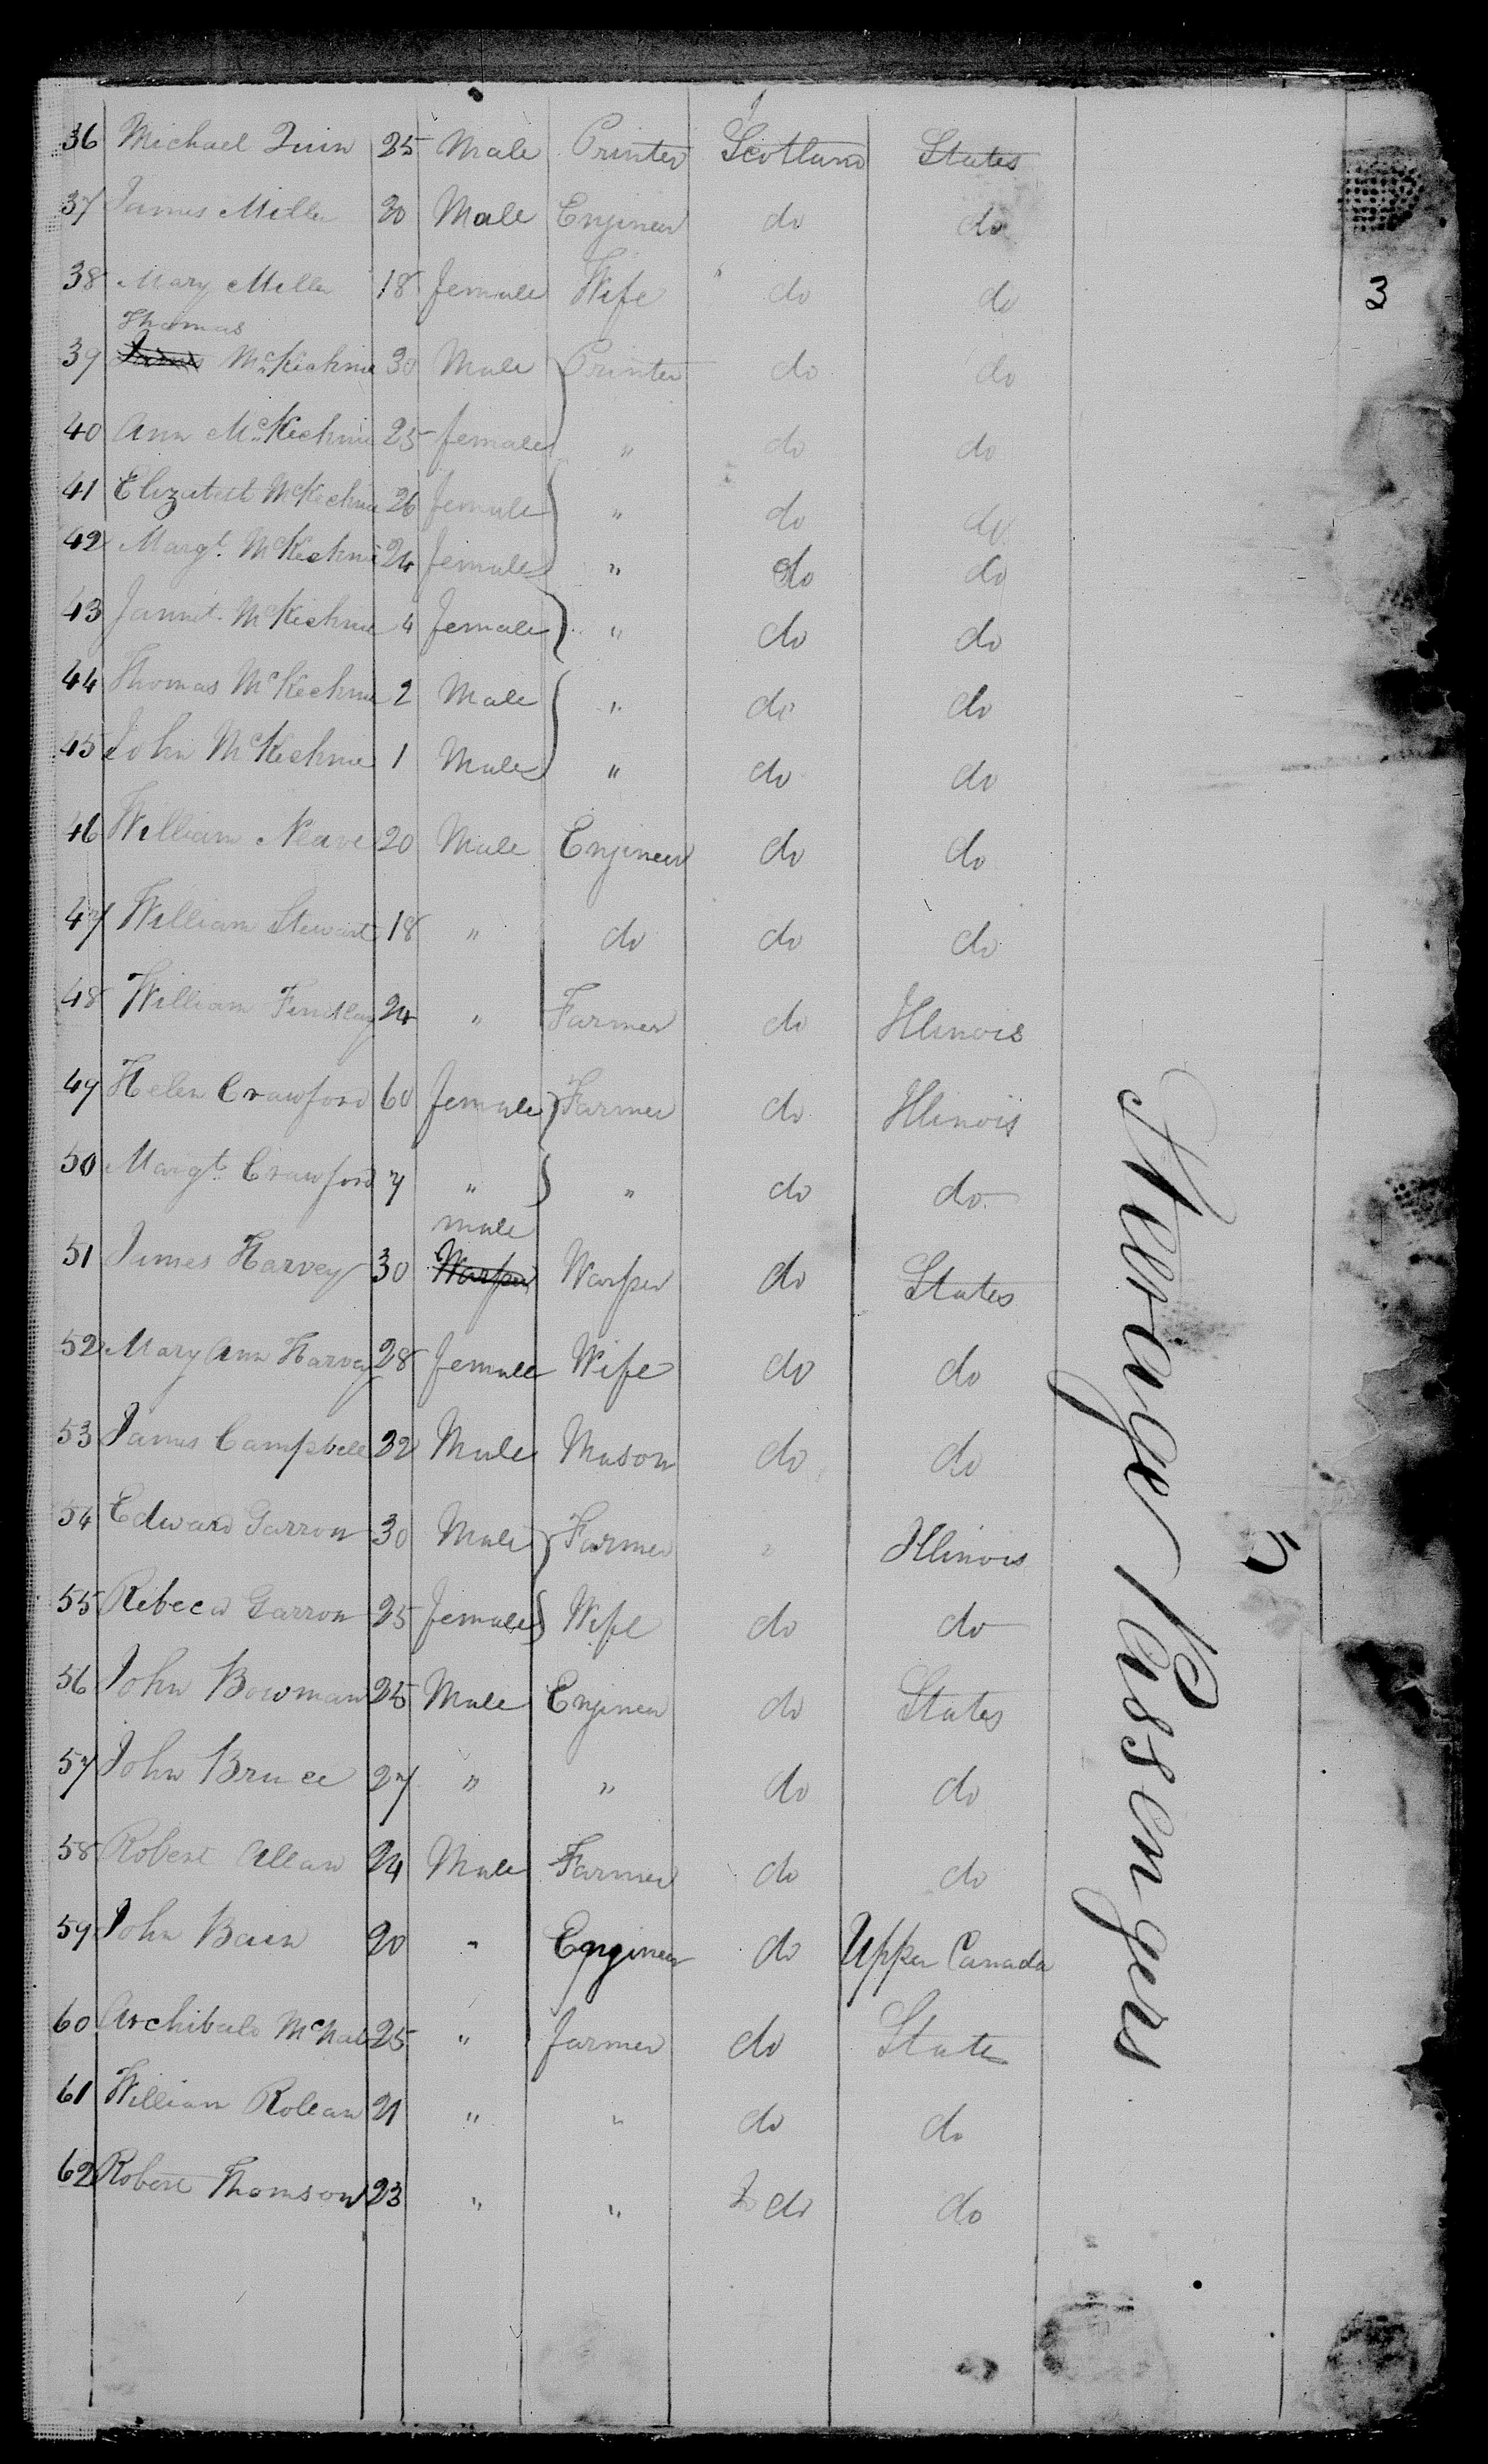 36 Michael Quin 25 Male Printer Scotland States
37 James Miller 20 Male Engineer do do
38 Mary Miller 18 female Wife do do
Thomas
39 James McKechnie 30 Male Printer do do
40 Ann McKechnie 25 female " do do
41 Elizabeth McKechnie 26 female " do do
42 Margt. McKechnie 24 female " do do
43 Jannet McKechnie 4 female " do do
44 Thomas McKechnie 2 Male " do do
45 John McKechnie 1 Male " do do
46 William Neave 20 Male Engineer do do
47 William Stewart 18 " do do do
48 William Findlay 24 " Farmer do Illinois
49 Helen Crawford 60 female Farmer do Illinois
50 Margt Crawford 7 " " do do
male
51 James Harvey 30 Warper Warper do States
52 Mary Ann Harvey 28 female Wife do do
53 James Campbell 32 Male Mason do do
54 Edward Garron 30 Male Farmer " Illinois
55 Rebeca Garron 25 female Wife do do
56 John Bowman 25 Male Engineer do States
57 John Bruce 27 " " do do
58 Robert Allan 24 Male Farmer do do
59 John Bain 20 " Engineer do Upper Canada
60 Archibald McNab 25 " farmer do States
61 William Rolean 21 " " do do
62 Robert Thomson 23 " " do do
Steerage Passengers
3
5